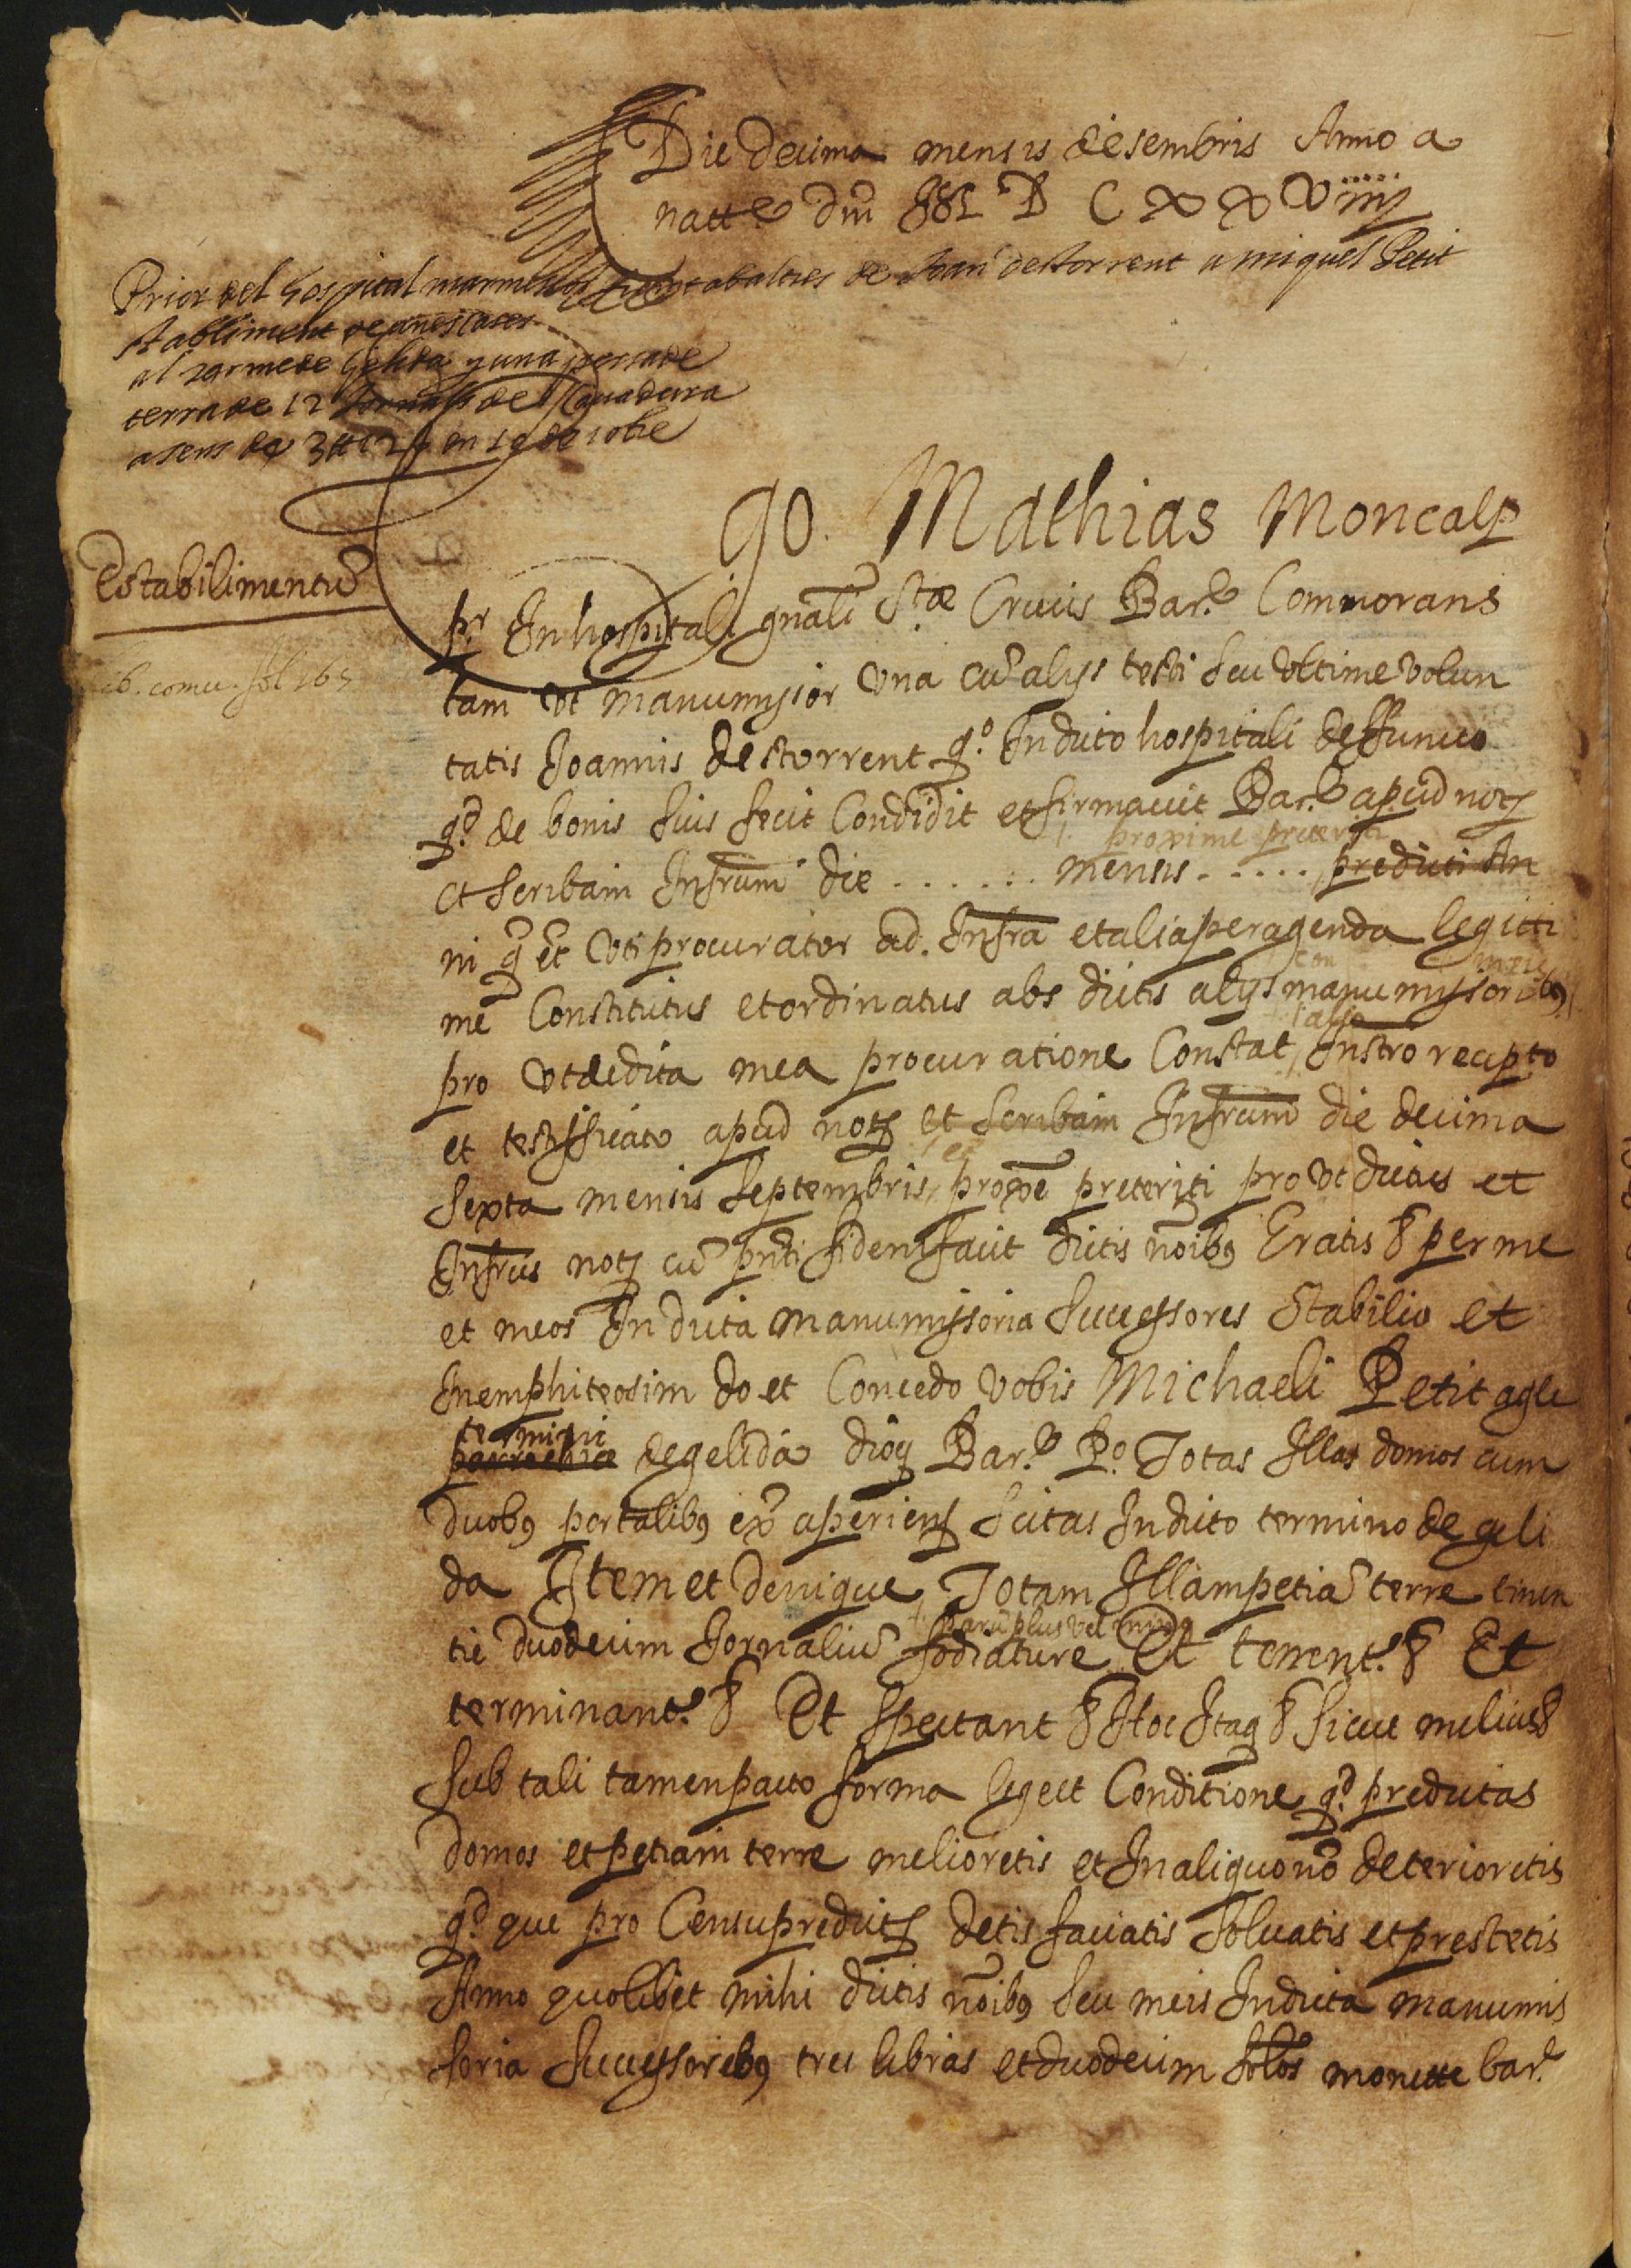 Die decima mensis desembris Anno a
natte dni M D C X X Viiij
Prior del Hospital marmessor juntab altres de Joan destorrent a miquel Petit
stabliment de unes cases
al terme de Gelida y una pessa de
terra de 12 Jornals de Cavadura
a sens de 3 tt 12 s en 10 de 10bre
Ego. Mathias Moncalp
Estabilimentũ
pr In hospitali gnali Stæ Crucis Bar.e Commorans
lib. comu. fol 165
tam ut manumissor una cũ alyss testi seu ultime volun
tatis Joannis destorrent qo. In dicto hospitali deffuncto
qd. de bonis suis fecit Condidit et firmavit Bar.e apud notz
proxime preteriti
et scribam Infrum die . . . . . . mensis . . . . . predicti An
ni q et uti procurator ad. Infra et alia peragenda legitti
con
me Constitutus et ordinatus abs dictis alys manumissorib9
pro ut de dicta mea procuratione Constat Instro recepto
et testifficato apud notz et scribam Infrum die decima
sexta mensis septembris proxe preteriti pro ut dictus et
Infrus notz cũ pnti fidem facit dictis noib9 Gratis & per me
et meos In dicta manumissoria successores Stabilio et
In emphiteosim do et Concedo vobis Michaeli Petit agle
termini
parrochie de gelida dioz Bar.e Po. Totas Illas domos cum
duob9 portalib9 ex aperienz scitas In dicto termino de geli
da Item et denique Totam Illam petiã terre tinen
parũ plus vel min9
tie duodecim Jornaliũ fodiature Et tenent.r & Et
terminant.r & Et spectant & Hoc Itaq & sicut melius &
sub tali tamen pacto forma lege et Conditione qd. predictas
domos et petiam terre melioretis et In aliquo nõ deterioretis
qd. que pro Censu predictz detis faciatis solvatis et prestetis
Anno quolibet mihi dictis noib9 seu meis In dicta manumis
soria successorib9 tres libras et duodecim solos monette bar.e